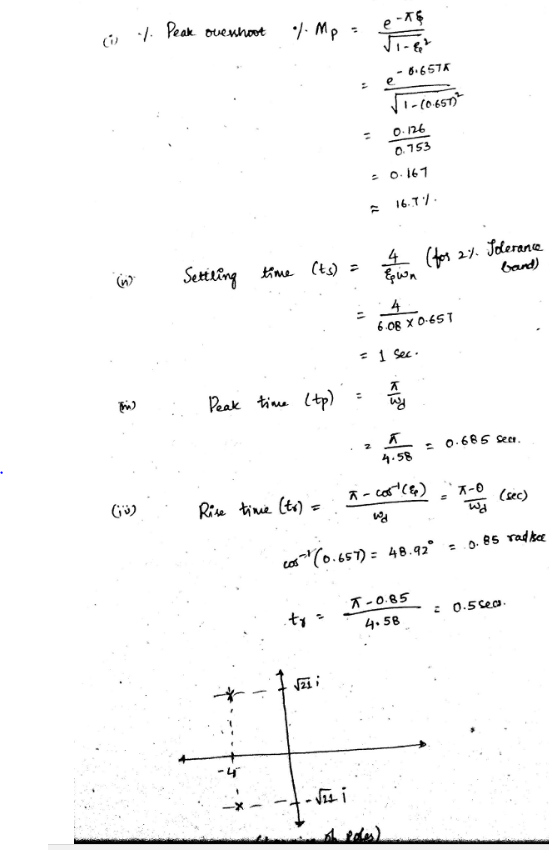 (i) %. Peak overshoot %. Mp = e^-πξ / √1-ξ²
= e^-0.657π / √1-(0.657)²
= 0.126 / 0.753
= 0.167
= 16.7%.
(ii) Settling time (ts) = 4 / ξωn (for 2%. Tolerance band)
= 4 / 6.08 X 0.657
= 1 sec.
(iii) Peak time (tp) = π / ωd
= π / 4.58 = 0.685 secs.
(iv) Rise time (tr) = π - cos⁻¹(ξ) / ωd = π-θ / ωd (sec)
cos⁻¹(0.657) = 48.92° = 0.85 rad/sec
tr = π-0.85 / 4.58 = 0.5 secs.
√21 i
-4
-√21 i
of Poles)